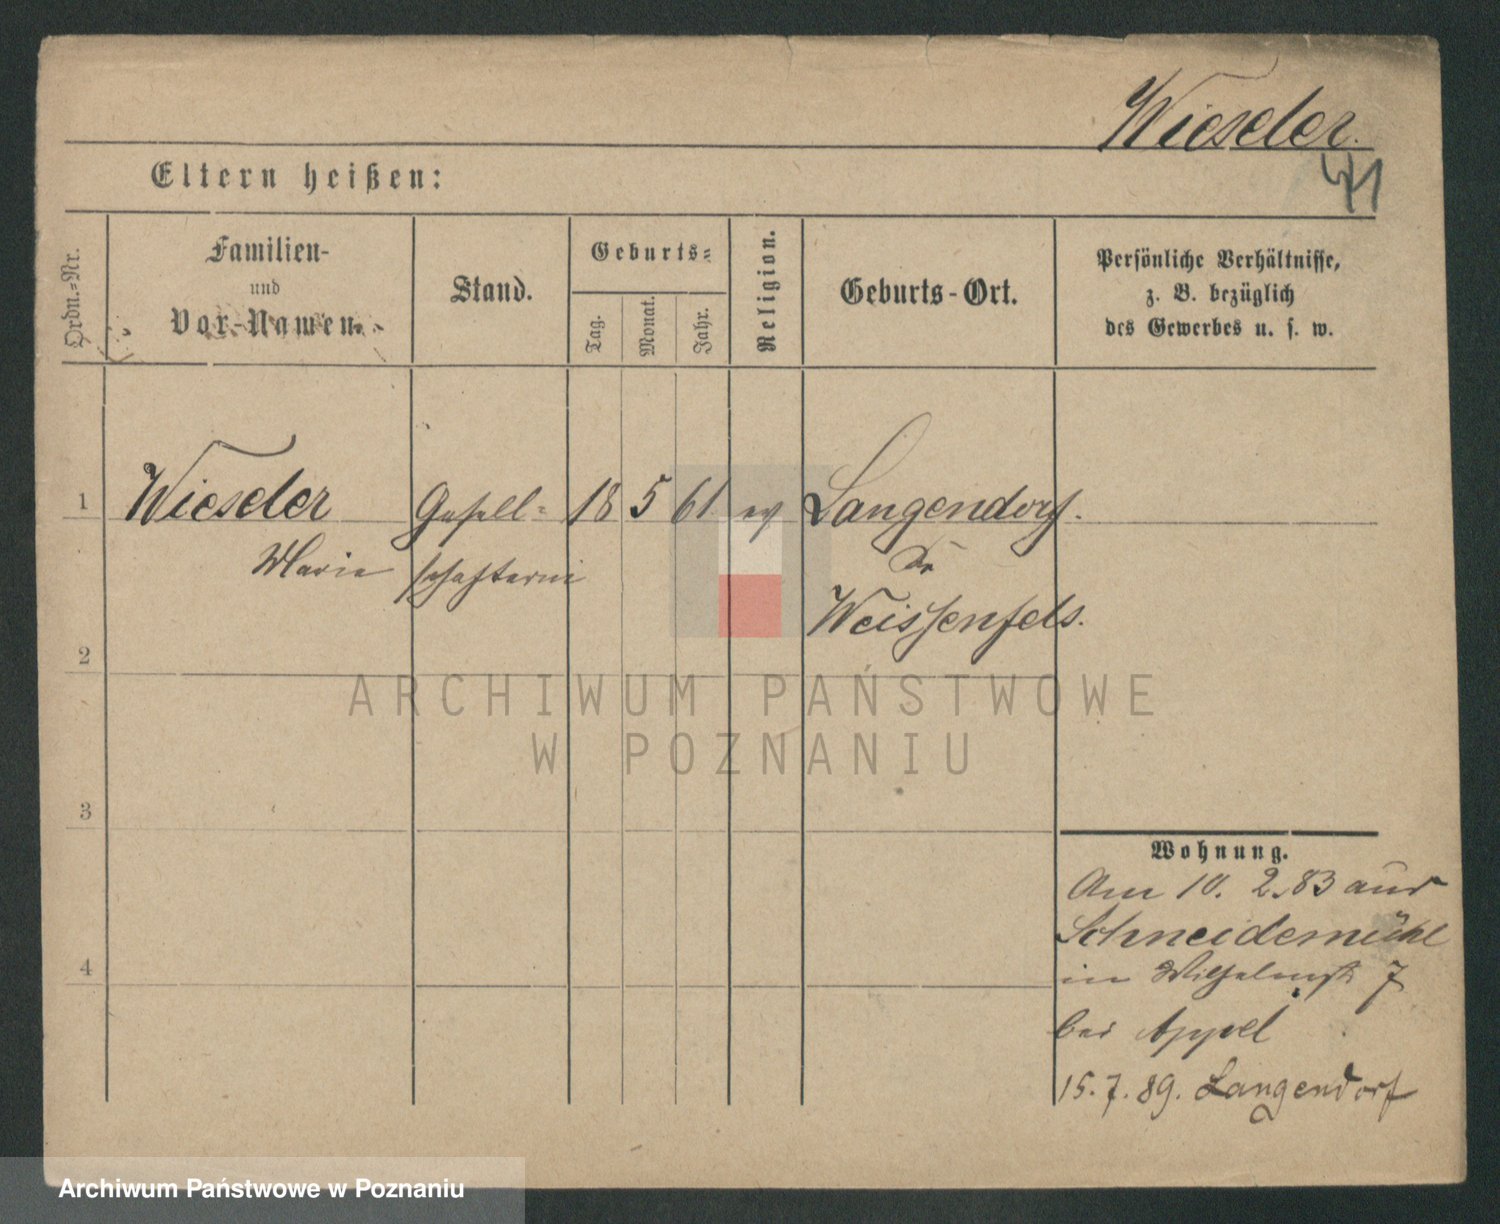 Wieseler.
41
Eltern heißen:
Ordn.-Nr.
Familien-
und
Vor-Namen.
Stand.
Geburts-
Tag.
Monat.
Jahr.
Religion.
Geburts-Ort.
Persönliche Verhältnisse,
z. B. bezüglich
des Gewerbes u. s. w.
1 Wieseler Gesell- 18 5 61 ev Langendorf.
Marie schafterin Kr
Weissenfels.
2
ARCHIWUM PAŃSTWOWE
W POZNANIU
3
Wohnung.
Am 10. 2. 83 aus
Schneidemühl
4
in Wilhelmstr 7
bei Appel
15. 7. 89. Langendorf
Archiwum Państwowe w Poznaniu